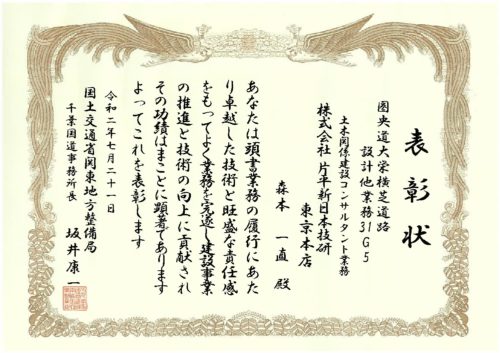 表彰状
圏央道大栄横芝道路
設計他業務31G5
土木関係建設コンサルタント業務
株式会社 片平新日本技研
東京本店
森本 一直 殿
あなたは頭書業務の履行にあた
り卓越した技術と旺盛な責任感
をもってよく業務を完遂し建設事業
の推進と技術の向上に貢献され
その功績はまことに顕著であります
よってこれを表彰します
令和二年七月二十一日
国土交通省関東地方整備局
千葉国道事務所長 坂井 康一